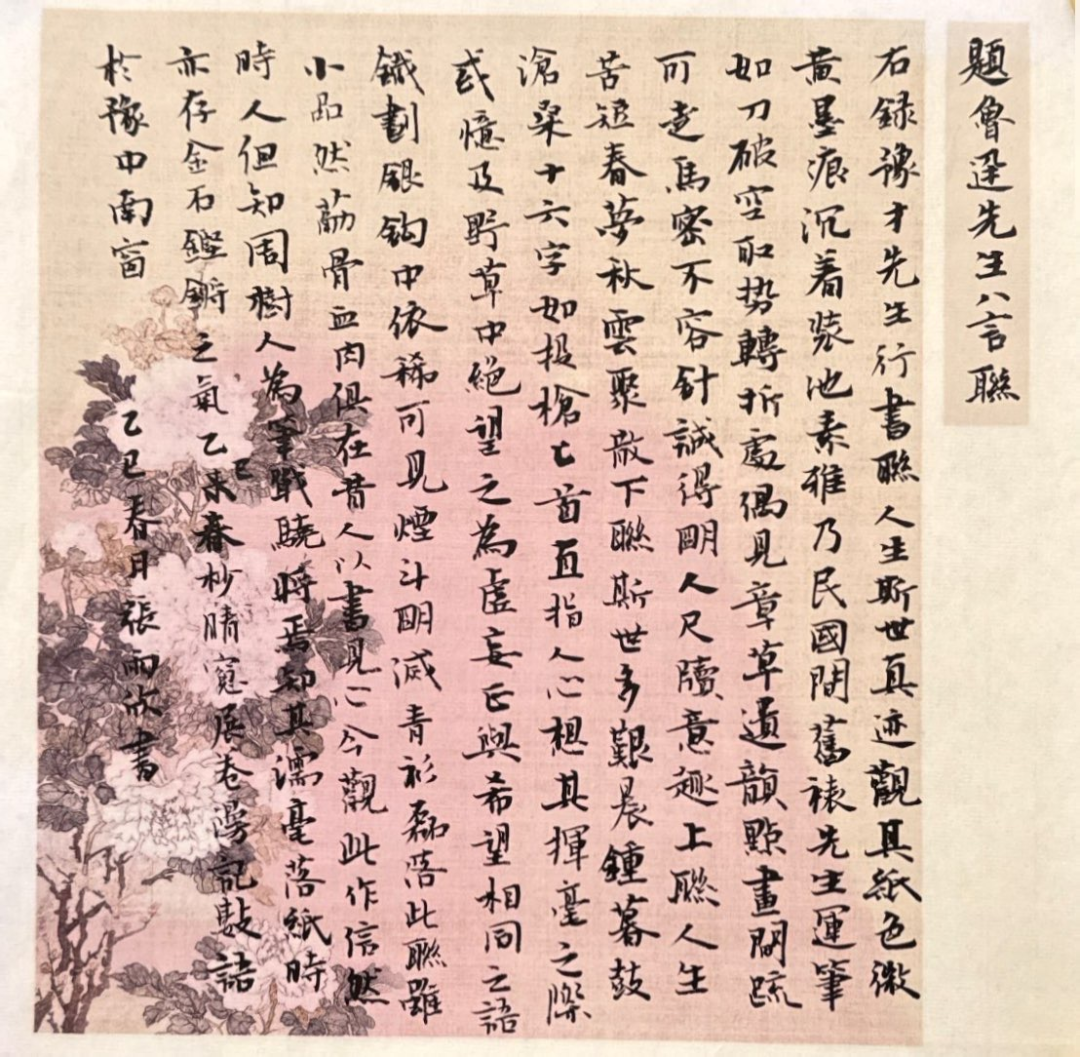 題魯迅先生八言聯
右録豫才先生行書聯人生斯世真迹觀其紙色微
黄墨痕沉着裝池素雅乃民國間舊裱先生運筆
如刀破空取势轉折處偶見章草遺韻點畫間疏
可走馬密不容針誠得明人尺牘意趣上聯人生
苦短春夢秋雲聚散下聯斯世多艱晨鍾暮鼓
滄桒十六字如投槍匕首直指人心想其揮毫之際
或憶及野草中絶望之為虚妄正與希望相同之語
鐵劃銀鈎中依稀可見煙斗明滅青衫磊落此聯雖
小品然荕骨血肉俱在昔人以書見心今觀此作信然
時人但知周樹人為筆戰驍將焉知其濡毫落紙時
亦存金石鏗鏘之氣乙未巳春杪晴窗展卷漫記數語
於豫中南窗
乙巳春月張雨放書